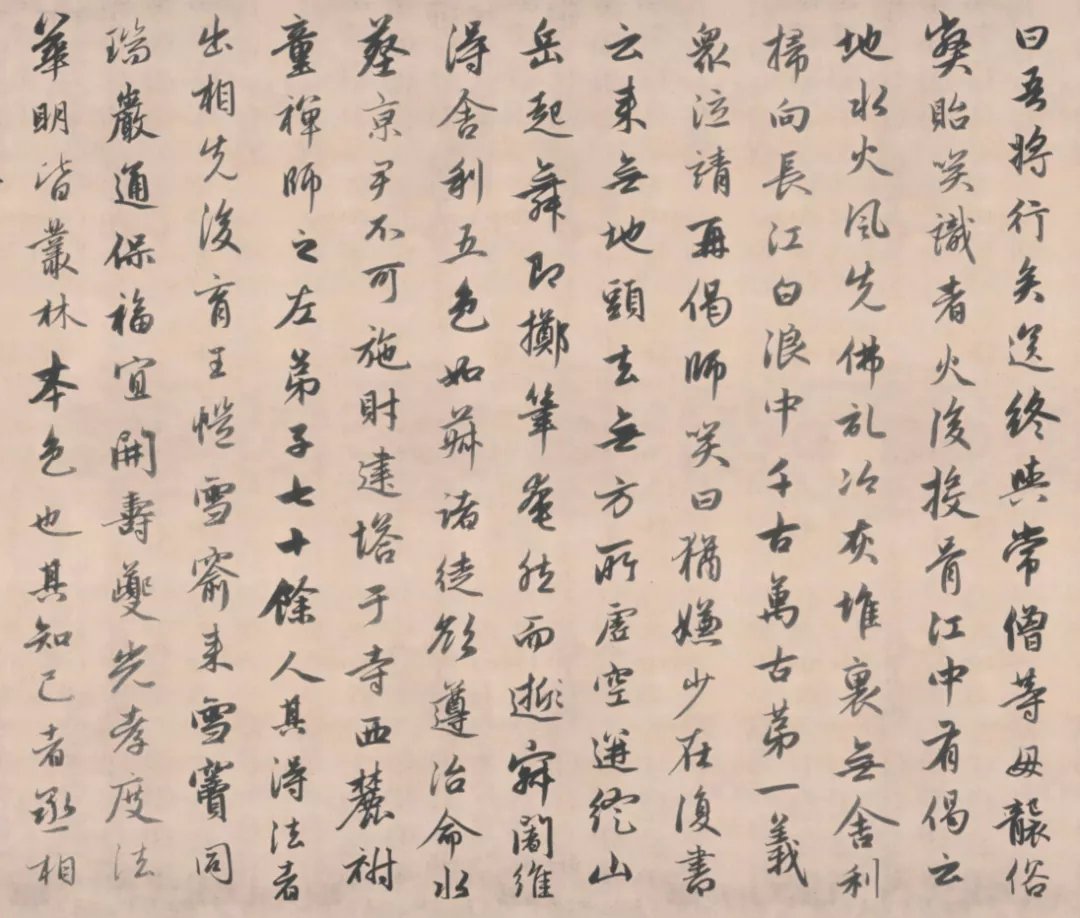 曰吾將行矣送終與常僧等毋襲俗
獘貽笑識者火後投骨江中有偈云
地水火風先佛乩冷灰堆裏無舍利
掃向長江白浪中千古萬古苐一義
眾泣請再偈師笑曰猶嫌少在復書
云来無地頭去無方所虛空迸綻山
岳起舞即擲筆奄然而逝闍維
得舍利五色如菽諸徒欲遵治命水
葬京尹不可施財建塔于寺西麓祔
童禪師之左弟子七十餘人其得法者
出相先後育王愷雪窬来雪竇同
瑞巖通保福宜開壽夔光孝度法
華明皆叢林本色也其知己者丞相